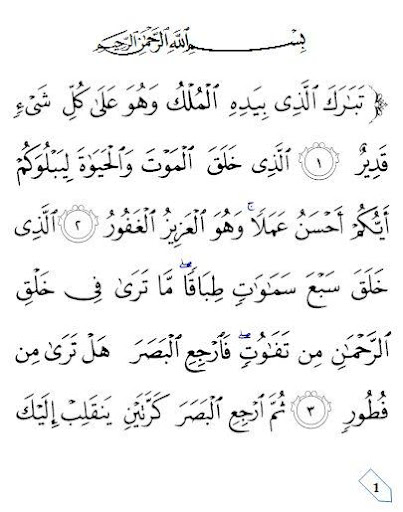 بِسْمِ ٱللَّهِ ٱلرَّحْمَٰنِ ٱلرَّحِيمِ
تَبَٰرَكَ ٱلَّذِى بِيَدِهِ ٱلْمُلْكُ وَهُوَ عَلَىٰ كُلِّ شَىْءٍ
قَدِيرٌ ١ ٱلَّذِى خَلَقَ ٱلْمَوْتَ وَٱلْحَيَوٰةَ لِيَبْلُوَكُمْ
أَيُّكُمْ أَحْسَنُ عَمَلًا ۚ وَهُوَ ٱلْعَزِيزُ ٱلْغَفُورُ ٢ ٱلَّذِى
خَلَقَ سَبْعَ سَمَٰوَٰتٍ طِبَاقًا ۖ مَّا تَرَىٰ فِى خَلْقِ
ٱلرَّحْمَٰنِ مِن تَفَٰوُتٍ ۖ فَٱرْجِعِ ٱلْبَصَرَ هَلْ تَرَىٰ مِن
فُطُورٍ ٣ ثُمَّ ٱرْجِعِ ٱلْبَصَرَ كَرَّتَيْنِ يَنقَلِبْ إِلَيْكَ
1